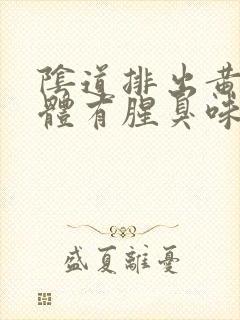 陰道排出黃
體有腥臭味
盛夏離憂